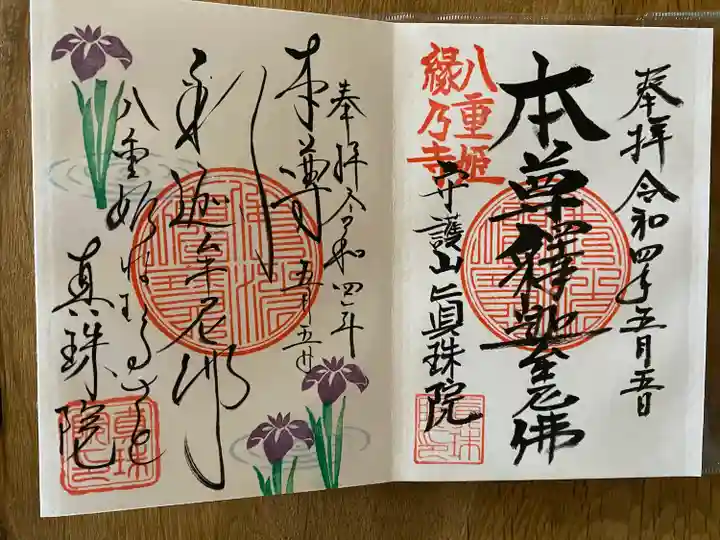 奉拝 令和四年五月五日
本尊釋迦牟尼佛
八重姫
縁乃寺
守護山眞珠院
奉拝 令和四年五月五日
本尊
釈迦牟尼佛
八重姫
真珠院